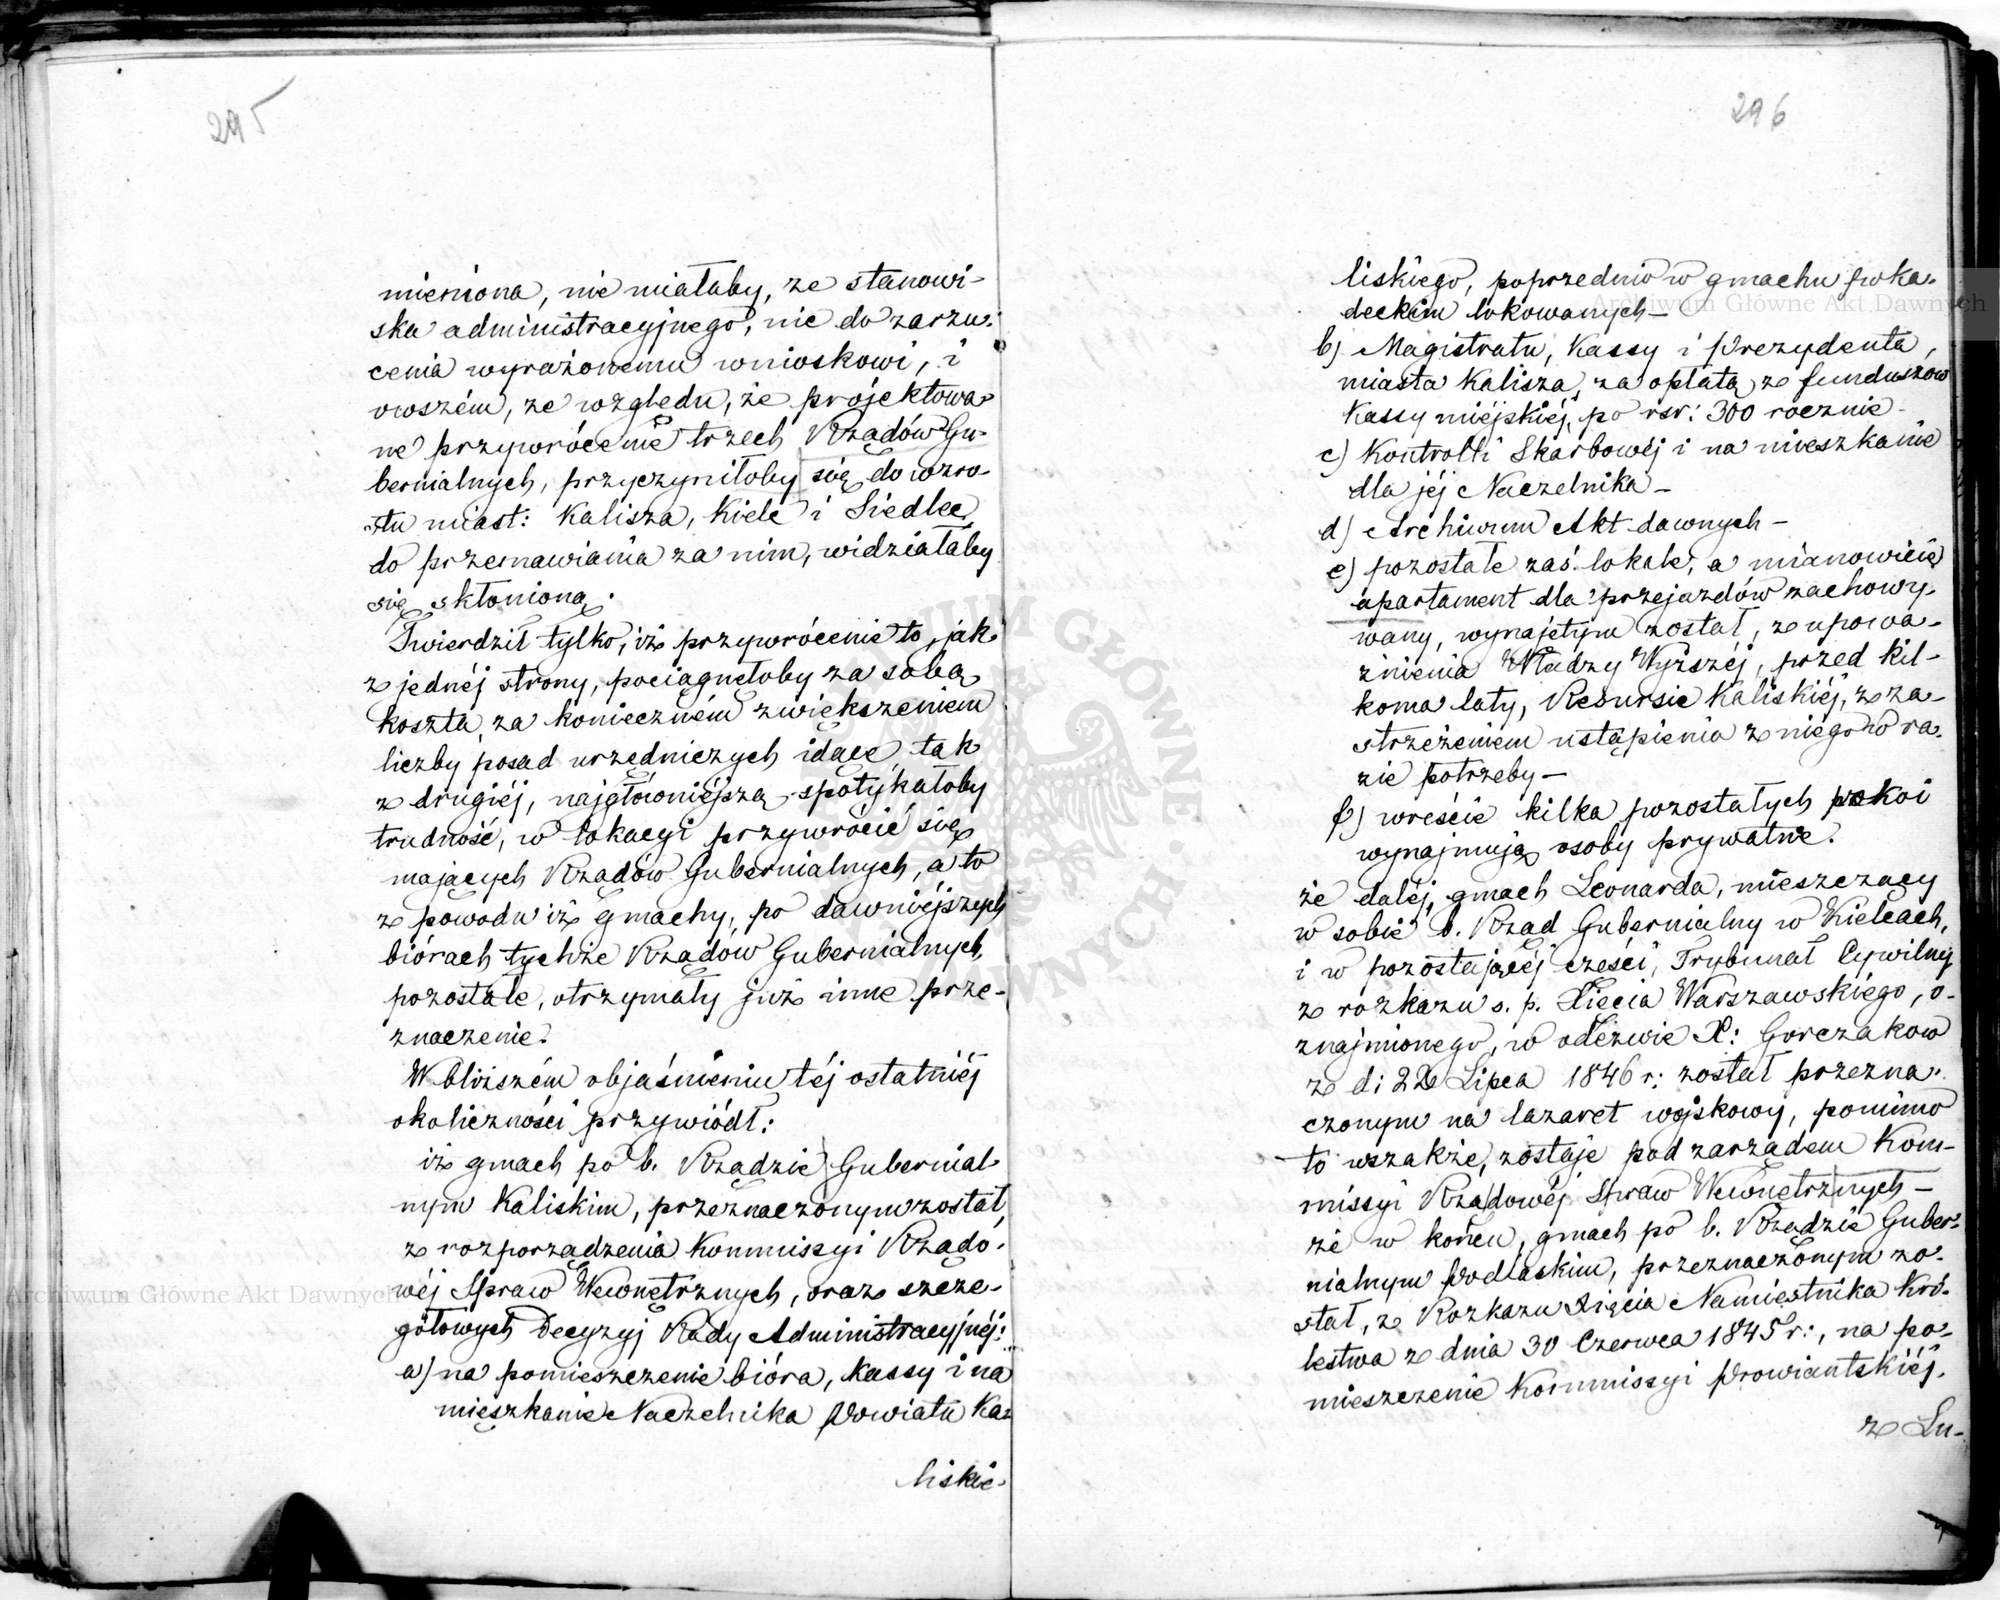 295
mieniona, nie miałaby, ze stanowi-
ska administracyjnego, nic do zarzu-
cenia wyrażonemu wnioskowi, i
owszém, ze względu, że projektowa-
ne przywrócenie trzech Rządów Gu-
bernialnych, przyczyniłoby się do wzro-
stu miast: Kalisza, Kielc i Siedlec,
do przemawiania za nim, widziałaby
się skłonioną.
Twierdził tylko, iż przywrócenie to, jak
z jednéj strony, pociągnęłoby za sobą
koszta, za konieczném zwiększeniem
liczby posad urzędniczych idące, tak
z drugiéj, najgłówniéjszą spotykałoby
trudność, w lokacyi przywrócić się
mających Rządów Gubernialnych, a to
z powodu iż gmachy, po dawniéjszych
biórach tychże Rządów Gubernialnych,
pozostałe, otrzymały już inne prze-
znaczenie.
W bliższém objaśnieniu téj ostatniéj
okoliczności przywiódł:
iż gmach po b. Rządzie Gubernial-
nym Kaliskim, przeznaczonym został,
z rozporządzenia Kommissyi Rządo-
wéj Spraw Wewnętrznych, oraz szcze-
gółowych Decyzyj Rady Administracyjnéj:
a) na pomieszczenie bióra, Kassy i na
mieszkanie Naczelnika Powiatu Ka-
liskie-
296
liskiego, poprzednio w gmachu poka-
deckim lokowanych—
b) Magistratu, Kassy i Prezydenta,
miasta Kalisza, za opłatą z funduszów
Kassy miéjskiéj, po rsr: 300 rocznie-
c) Kontrolli Skarbowéj i na mieszkanie
dla jéj Naczelnika—
d) Archiwum Akt dawnych—
e) pozostałe zaś lokale, a mianowicie
apartament dla przejazdów zachowy-
wany, wynajętym został, z upowa-
żnienia Władzy Wyższéj, przed kil-
koma laty, Resursie Kaliskiéj, z za-
strzeżeniem ustąpienia z niego w ra-
zie potrzeby—
f) wreście kilka pozostałych pokoi
wynajmują osoby prywatne.
że daléj, gmach Leonarda, mieszczący
w sobie b. Rząd Gubernialny w Kielcach,
i w pozostającéj części, Trybunał Cywilny
z rozkazu ś. p. Xięcia Warszawskiego, o-
znajmionego, w odezwie X: Gorczakow
z d: 22 Lipca 1846 r: został przezna-
czonym na lazaret wojskowy, pomimo
to wszakże, zostaje pod zarządem Kom-
missyi Rządowéj Spraw Wewnętrznych—
że w końcu, gmach po b. Rządzie Guber-
nialnym Podlaskim, przeznaczonym zo-
stał, z Rozkazu Xięcia Namiestnika Kró-
lestwa z dnia 30 Czerwca 1845 r:, na po-
mieszczenie Kommissyi Prowiantskiéj.
z Lu-
Archiwum Główne Akt Dawnych
Archiwum Główne Akt Dawnych